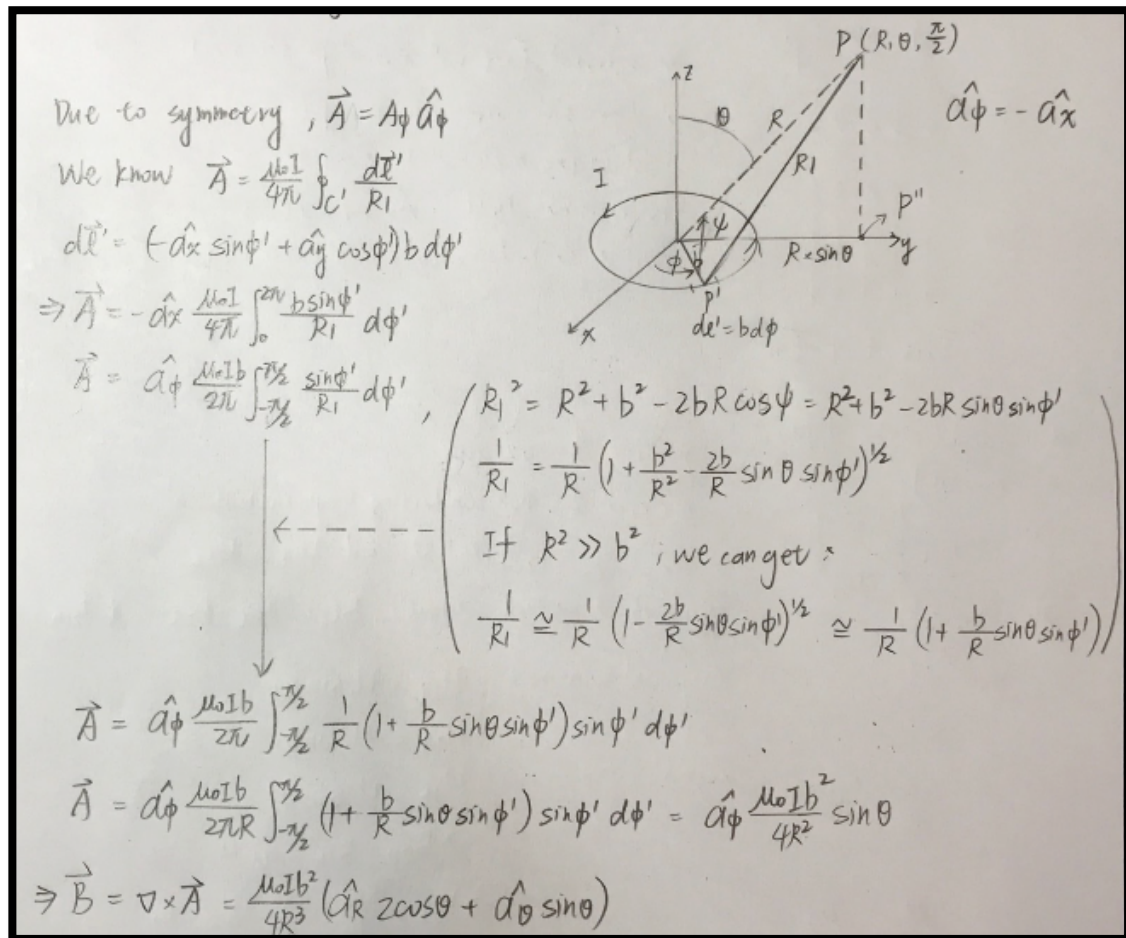 Due to symmetry, \vec{A} = A_φ \hat{a_φ}
We know \vec{A} = \frac{μ_0 I}{4π} \oint_{C'} \frac{d\vec{l}'}{R_1}
d\vec{l}' = (-\hat{a_x} sinφ' + \hat{a_y} cosφ') b dφ'
⇒ \vec{A} = -\hat{a_x} \frac{μ_0 I}{4π} \int_0^{2π} \frac{b sinφ'}{R_1} dφ'
\vec{A} = \hat{a_φ} \frac{μ_0 I b}{2π} \int_{-π/2}^{π/2} \frac{sinφ'}{R_1} dφ' ,
P (R, θ, \frac{π}{2})
\hat{a_φ} = -\hat{a_x}
z
θ
R
R_1
I
ψ
P''
φ'
b
R·sinθ
y
P'
x
dl' = b dφ
R_1^2 = R^2 + b^2 - 2bR cosψ = R^2 + b^2 - 2bR sinθ sinφ'
\frac{1}{R_1} = \frac{1}{R} (1 + \frac{b^2}{R^2} - \frac{2b}{R} sinθ sinφ')^{1/2}
If R^2 >> b^2, we can get:
\frac{1}{R_1} ≅ \frac{1}{R} (1 - \frac{2b}{R} sinθ sinφ')^{1/2} ≅ \frac{1}{R} (1 + \frac{b}{R} sinθ sinφ')
\vec{A} = \hat{a_φ} \frac{μ_0 I b}{2π} \int_{-π/2}^{π/2} \frac{1}{R} (1 + \frac{b}{R} sinθ sinφ') sinφ' dφ'
\vec{A} = \hat{a_φ} \frac{μ_0 I b}{2πR} \int_{-π/2}^{π/2} (1 + \frac{b}{R} sinθ sinφ') sinφ' dφ' = \hat{a_φ} \frac{μ_0 I b^2}{4R^2} sinθ
⇒ \vec{B} = ∇ × \vec{A} = \frac{μ_0 I b^2}{4R^3} (\hat{a_R} 2cosθ + \hat{a_θ} sinθ)